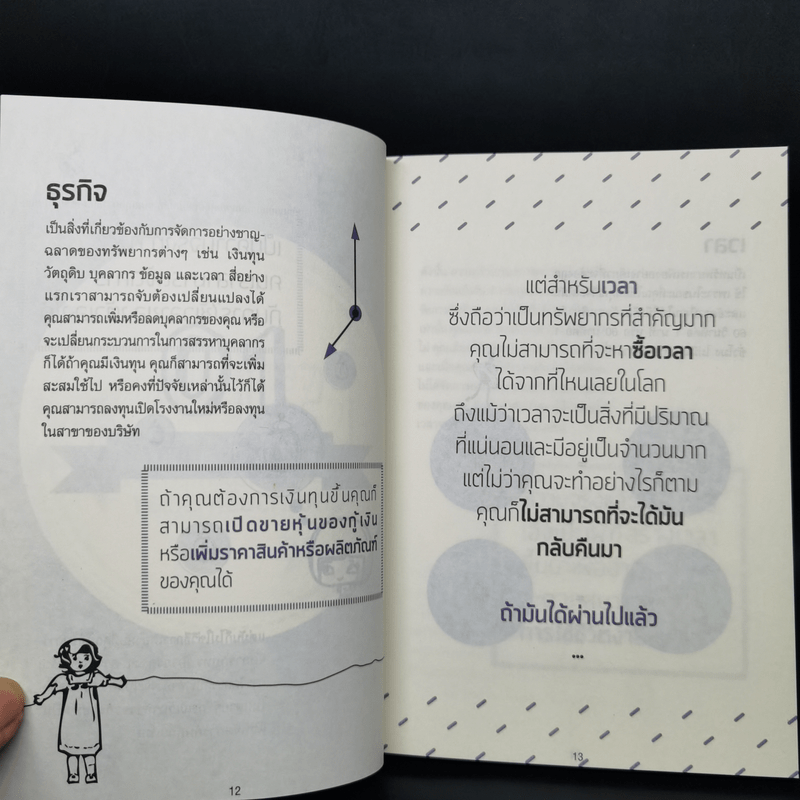 ธุรกิจ
เป็นสิ่งที่เกี่ยวข้องกับการจัดการอย่างชาญ-
ฉลาดของทรัพยากรต่างๆ เช่น เงินทุน
วัตถุดิบ บุคลากร ข้อมูล และเวลา สี่อย่าง
แรกเราสามารถจับต้องเปลี่ยนแปลงได้
คุณสามารถเพิ่มหรือลดบุคลากรของคุณ หรือ
จะเปลี่ยนกระบวนการในการสรรหาบุคลากร
ก็ได้ถ้าคุณมีเงินทุน คุณก็สามารถที่จะเพิ่ม
สะสมใช้ไป หรือคงที่ปัจจัยเหล่านั้นไว้ก็ได้
คุณสามารถลงทุนเปิดโรงงานใหม่หรือลงทุน
ในสาขาของบริษัท
ถ้าคุณต้องการเงินทุนขึ้นคุณก็
สามารถเปิดขายหุ้นของกู้เงิน
หรือเพิ่มราคาสินค้าหรือผลิตภัณฑ์
ของคุณได้
12
แต่สำหรับเวลา
ซึ่งถือว่าเป็นทรัพยากรที่สำคัญมาก
คุณไม่สามารถที่จะหาซื้อเวลา
ได้จากที่ไหนเลยในโลก
ถึงแม้ว่าเวลาจะเป็นสิ่งที่มีปริมาณ
ที่แน่นอนและมีอยู่เป็นจำนวนมาก
แต่ไม่ว่าคุณจะทำอย่างไรก็ตาม
คุณก็ไม่สามารถที่จะได้มัน
กลับคืนมา
ถ้ามันได้ผ่านไปแล้ว
...
13